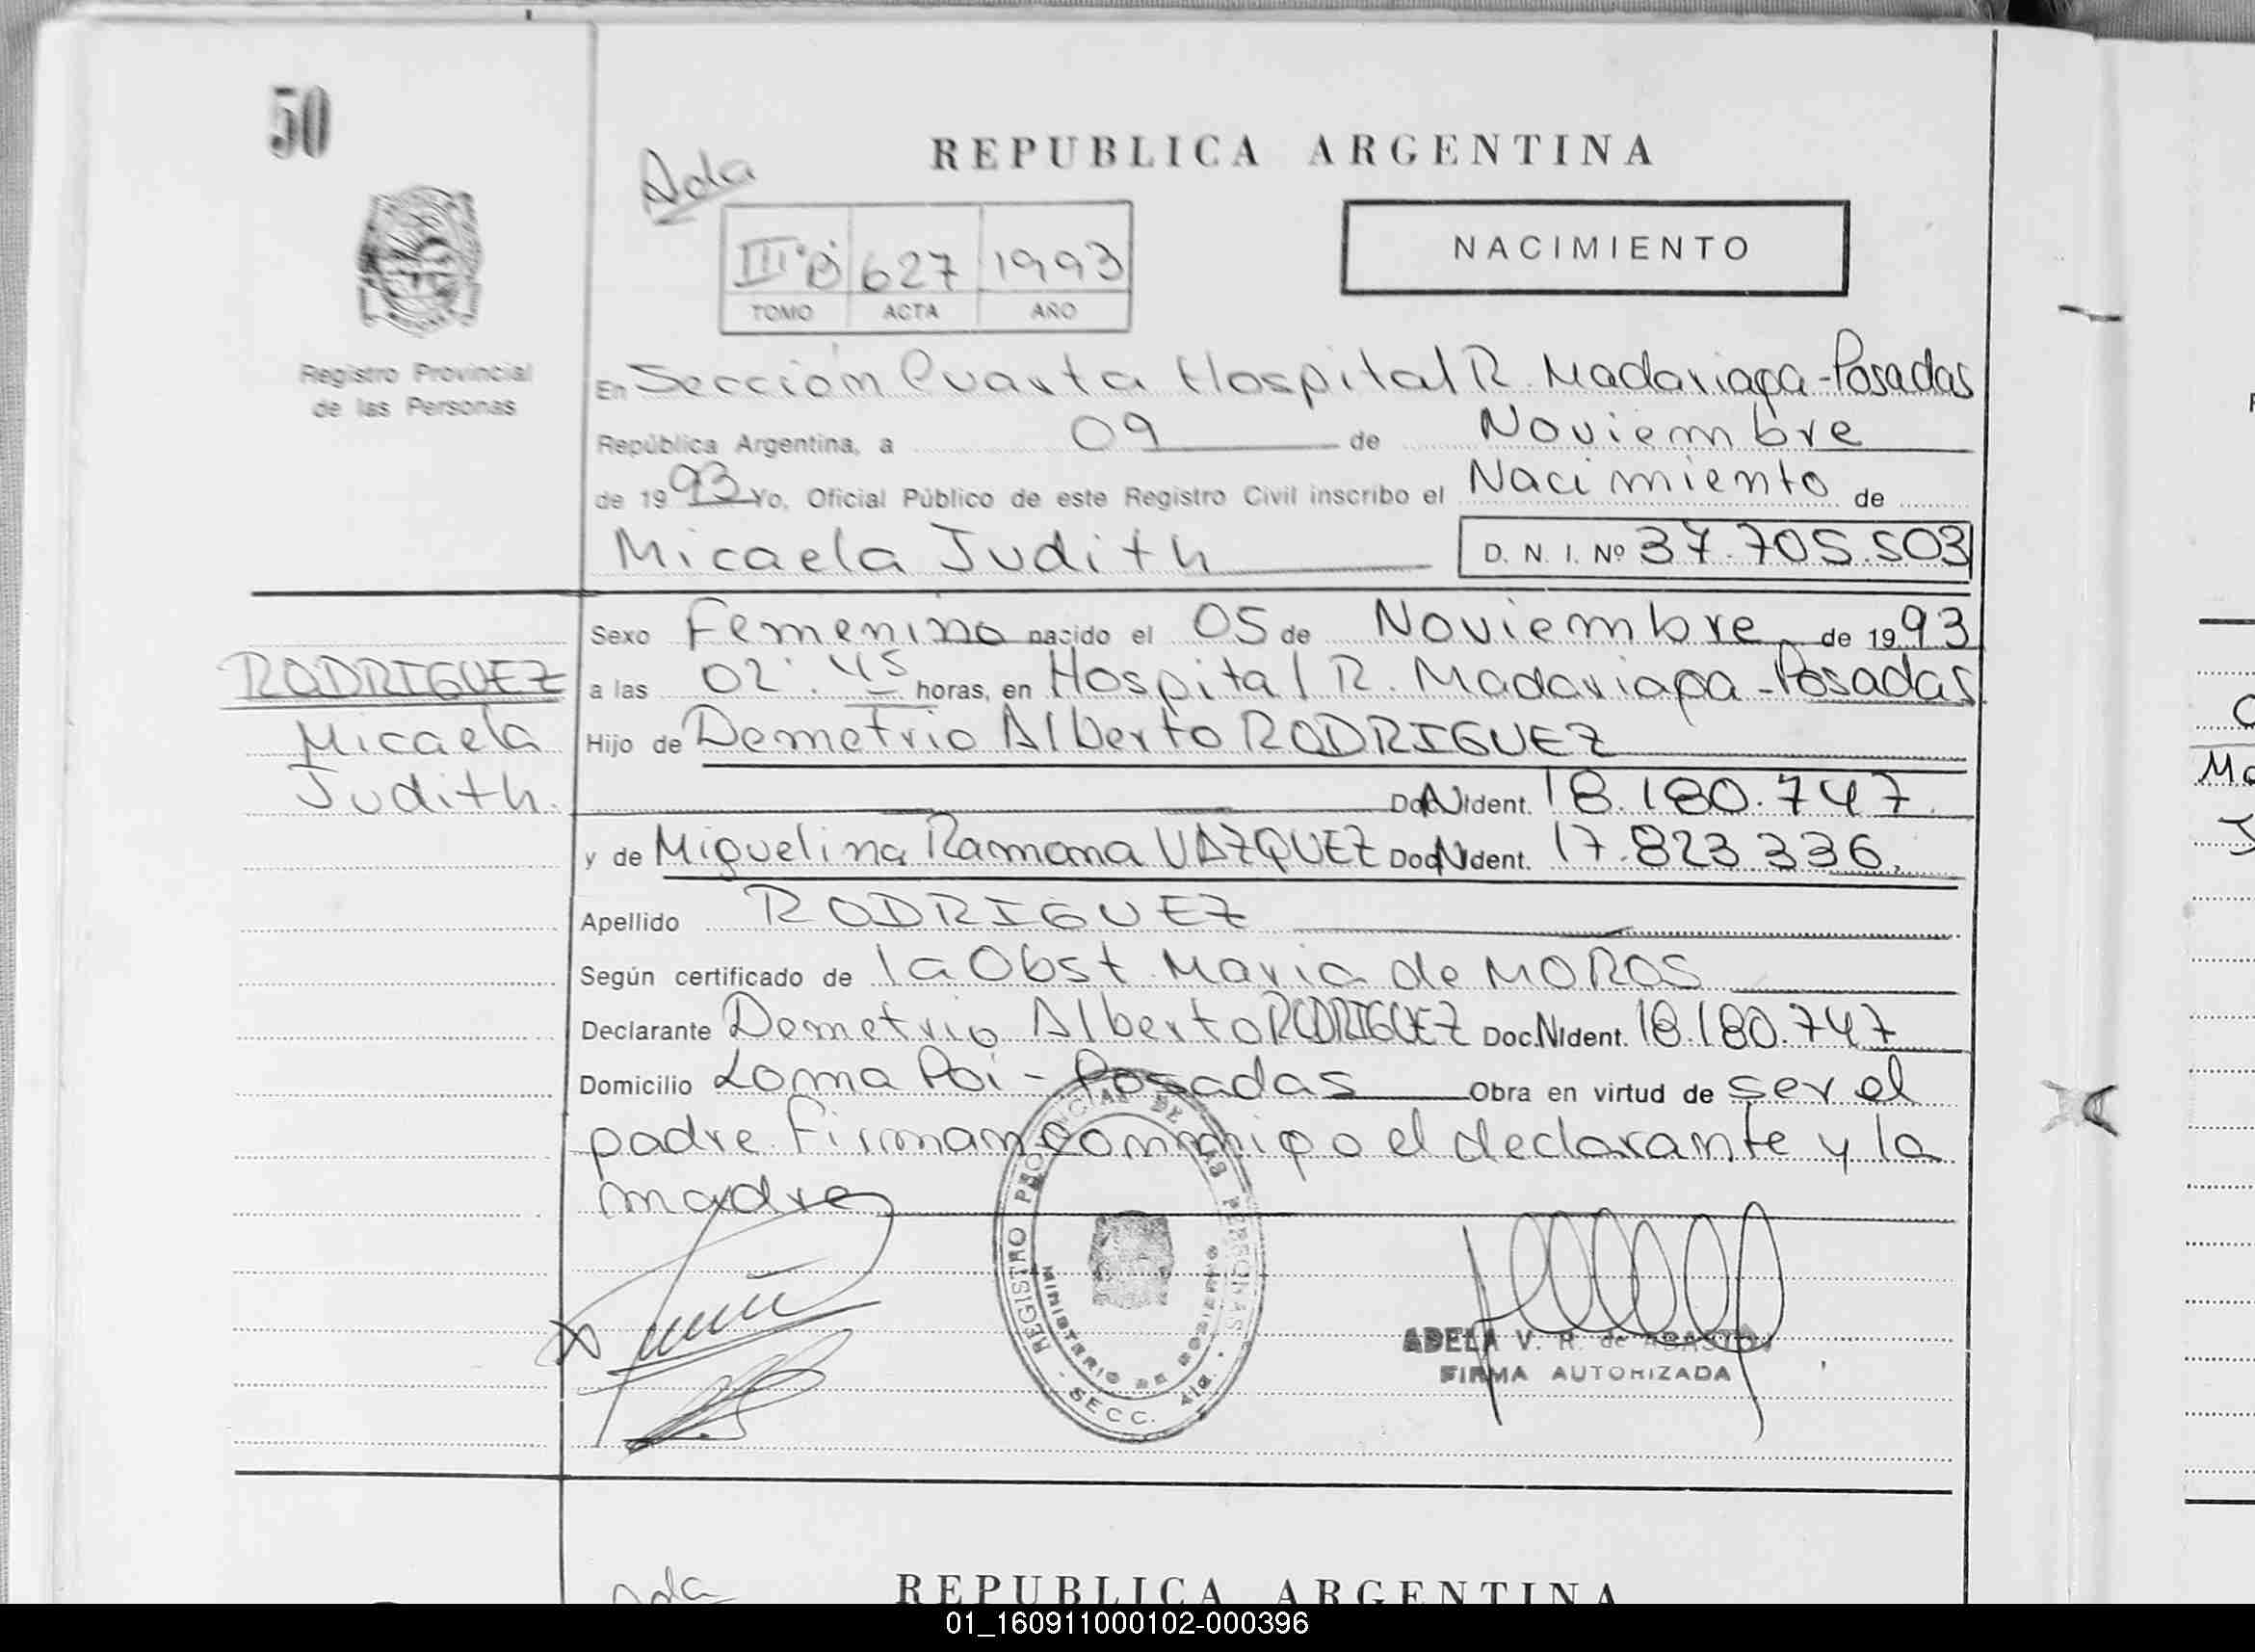 50
Ada
REPUBLICA ARGENTINA
NACIMIENTO
IIIº B 627 1993
TOMO ACTA AÑO
Registro Provincial
de las Personas
En Sección Cuarta Hospital R. Madariaga - Posadas
República Argentina, a 09 de Noviembre
de 1993 Yo, Oficial Público de este Registro Civil inscribo el Nacimiento de
Micaela Judith D. N. I. Nº 37.705.503
Sexo Femenino nacido el 05 de Noviembre de 1993
RODRIGUEZ
Micaela
Judith.
a las 02:45 horas, en Hospital R. Madariaga - Posadas
Hijo de Demetrio Alberto RODRIGUEZ
Doc.N.Ident. 18.180.747
y de Miguelina Ramona VAZQUEZ Doc.N.Ident. 17.823.336.
Apellido RODRIGUEZ
Según certificado de la Obst. Maria de MOROS
Declarante Demetrio Alberto RODRIGUEZ Doc.N.Ident. 18.180.747
Domicilio Loma Poi - Posadas Obra en virtud de ser el
padre. Firman conmigo el declarante y la
madre
REGISTRO PROVINCIAL DE LAS PERSONAS
MINISTERIO DE GOBIERNO
SECC. 4ta.
ADELA V. R. de
FIRMA AUTORIZADA
Ada
REPUBLICA ARGENTINA
01_160911000102-000396